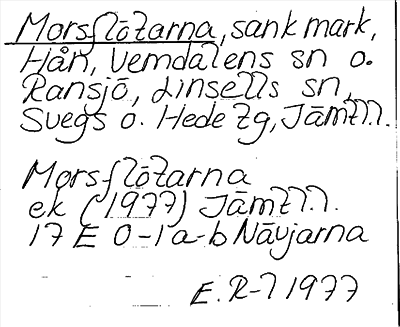 Morsflōtarna, sank mark,
Hån, Vemdalens sn o.
Ransjō, Linsells sn,
Svegs o. Hede tg, Jāmtl.
Morsflōtarna
ek (1977) Jāmtl.
17 E 0-1 a-b Nāvjarna
E. R-l 1977